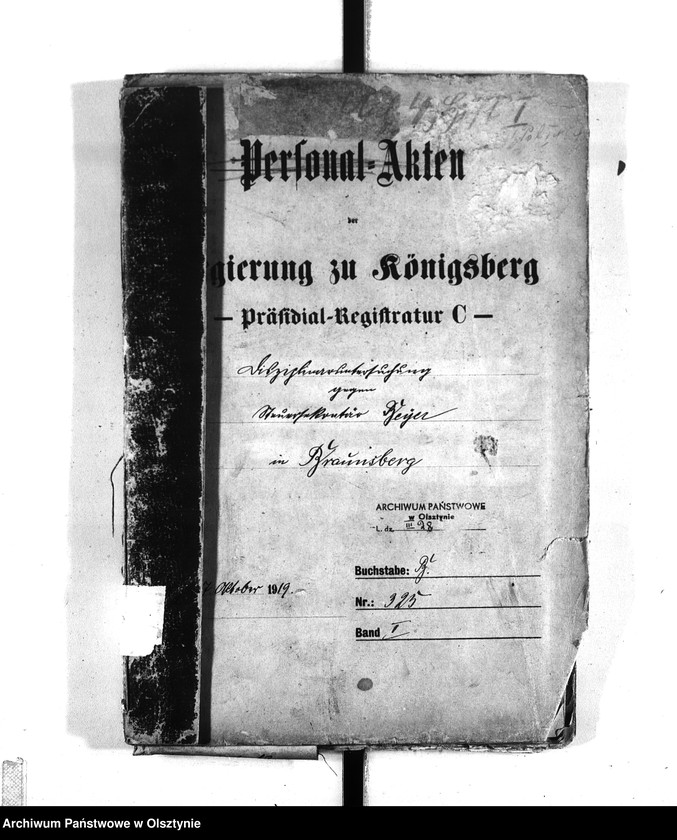 I
Personal-Akten
der
gierung zu Königsberg
— Präsidial-Registratur C —
Disziplinaruntersuchung
gegen
Steuersekretär Beyer
in Braunsberg
ARCHIWUM PAŃSTWOWE
w Olsztynie
L. dz. III 28
Buchstabe: B.
Oktober 1919.
Nr.: 325
Band I
Archiwum Państwowe w Olsztynie